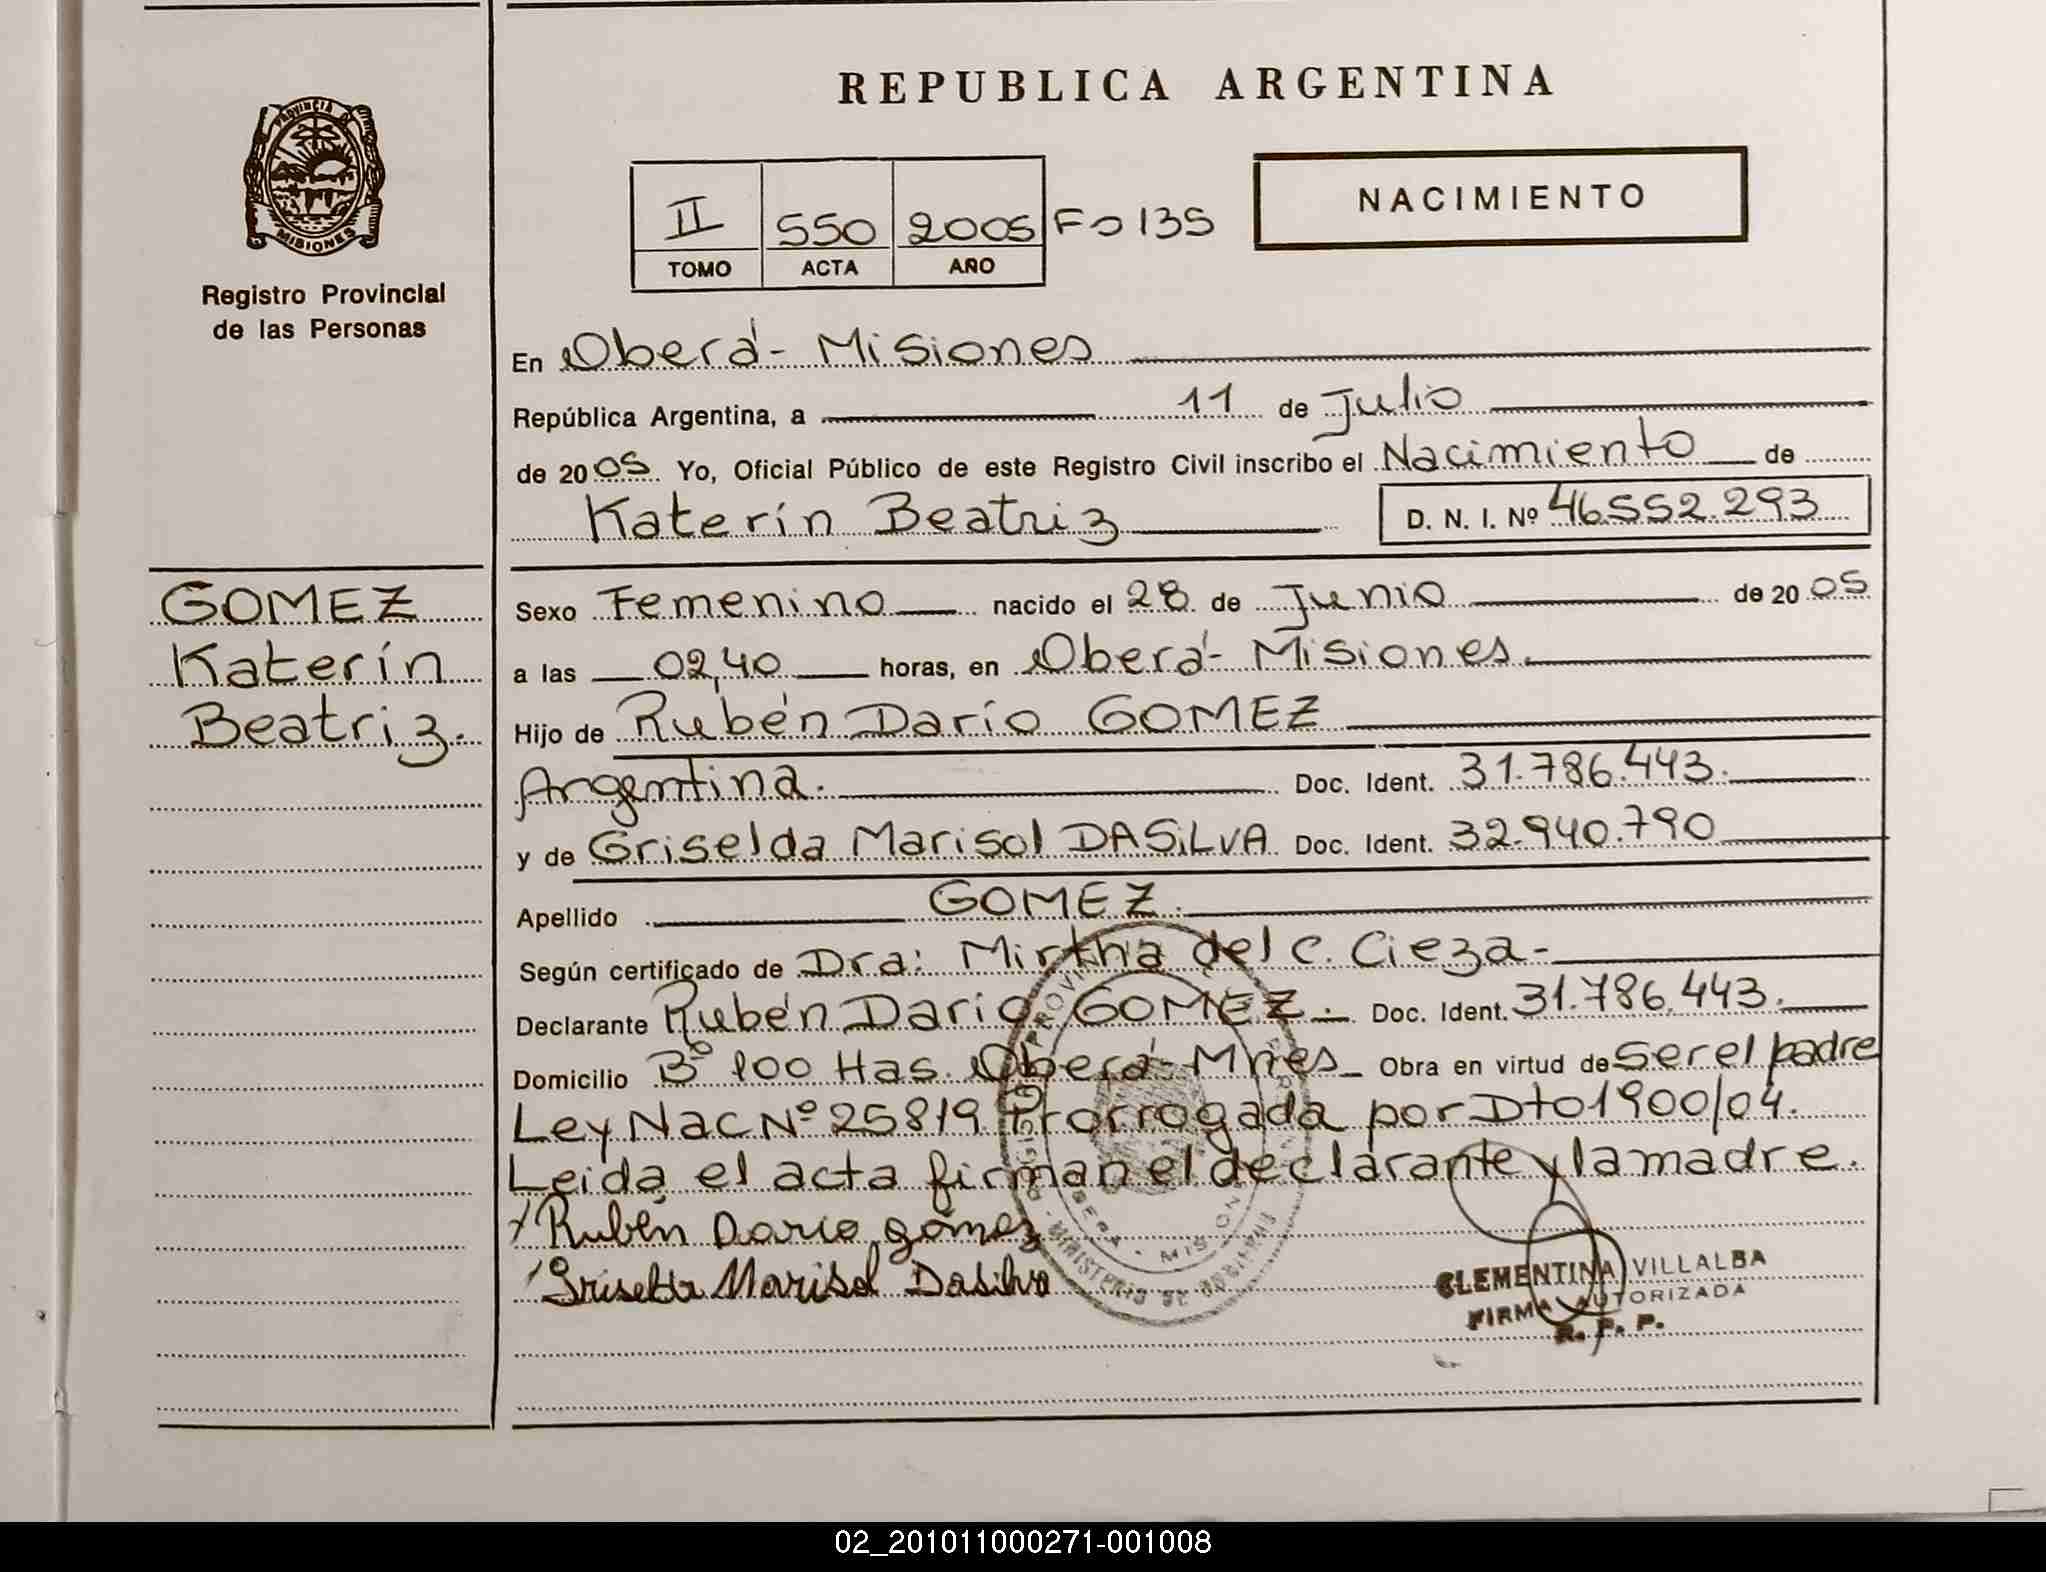 REPUBLICA ARGENTINA
PROVINCIA DE
MISIONES
Registro Provincial
de las Personas
II 550 2005 Fo 135
TOMO ACTA AÑO
NACIMIENTO
En Oberá - Misiones
República Argentina, a 11 de Julio
de 2005 Yo, Oficial Público de este Registro Civil inscribo el Nacimiento de
Katerín Beatriz D. N. I. Nº 46.552.293
GOMEZ
Katerín
Beatriz.
Sexo Femenino nacido el 28 de Junio de 2005
a las 02,40 horas, en Oberá - Misiones.
Hijo de Rubén Darío GOMEZ
Argentina. Doc. Ident. 31.786.443.
y de Griselda Marisol DASiLVA Doc. Ident. 32.940.790
Apellido GOMEZ.
Según certificado de Dra: Mirtha del C. Cieza-
Declarante Rubén Darío GOMEZ. Doc. Ident. 31.786.443.
Domicilio Bº 100 Has. Oberá - Mnes Obra en virtud de Ser el padre
Ley Nac Nº 25819 Prorrogada por Dto 1900/04.
Leida el acta firman el declarante y la madre.
Rubén Dario gómez
Griselda Marisol Dasilva
MINISTERIO DE GOBIERNO
CLEMENTINA VILLALBA
FIRMA AUTORIZADA
R. P. P.
02_201011000271-001008